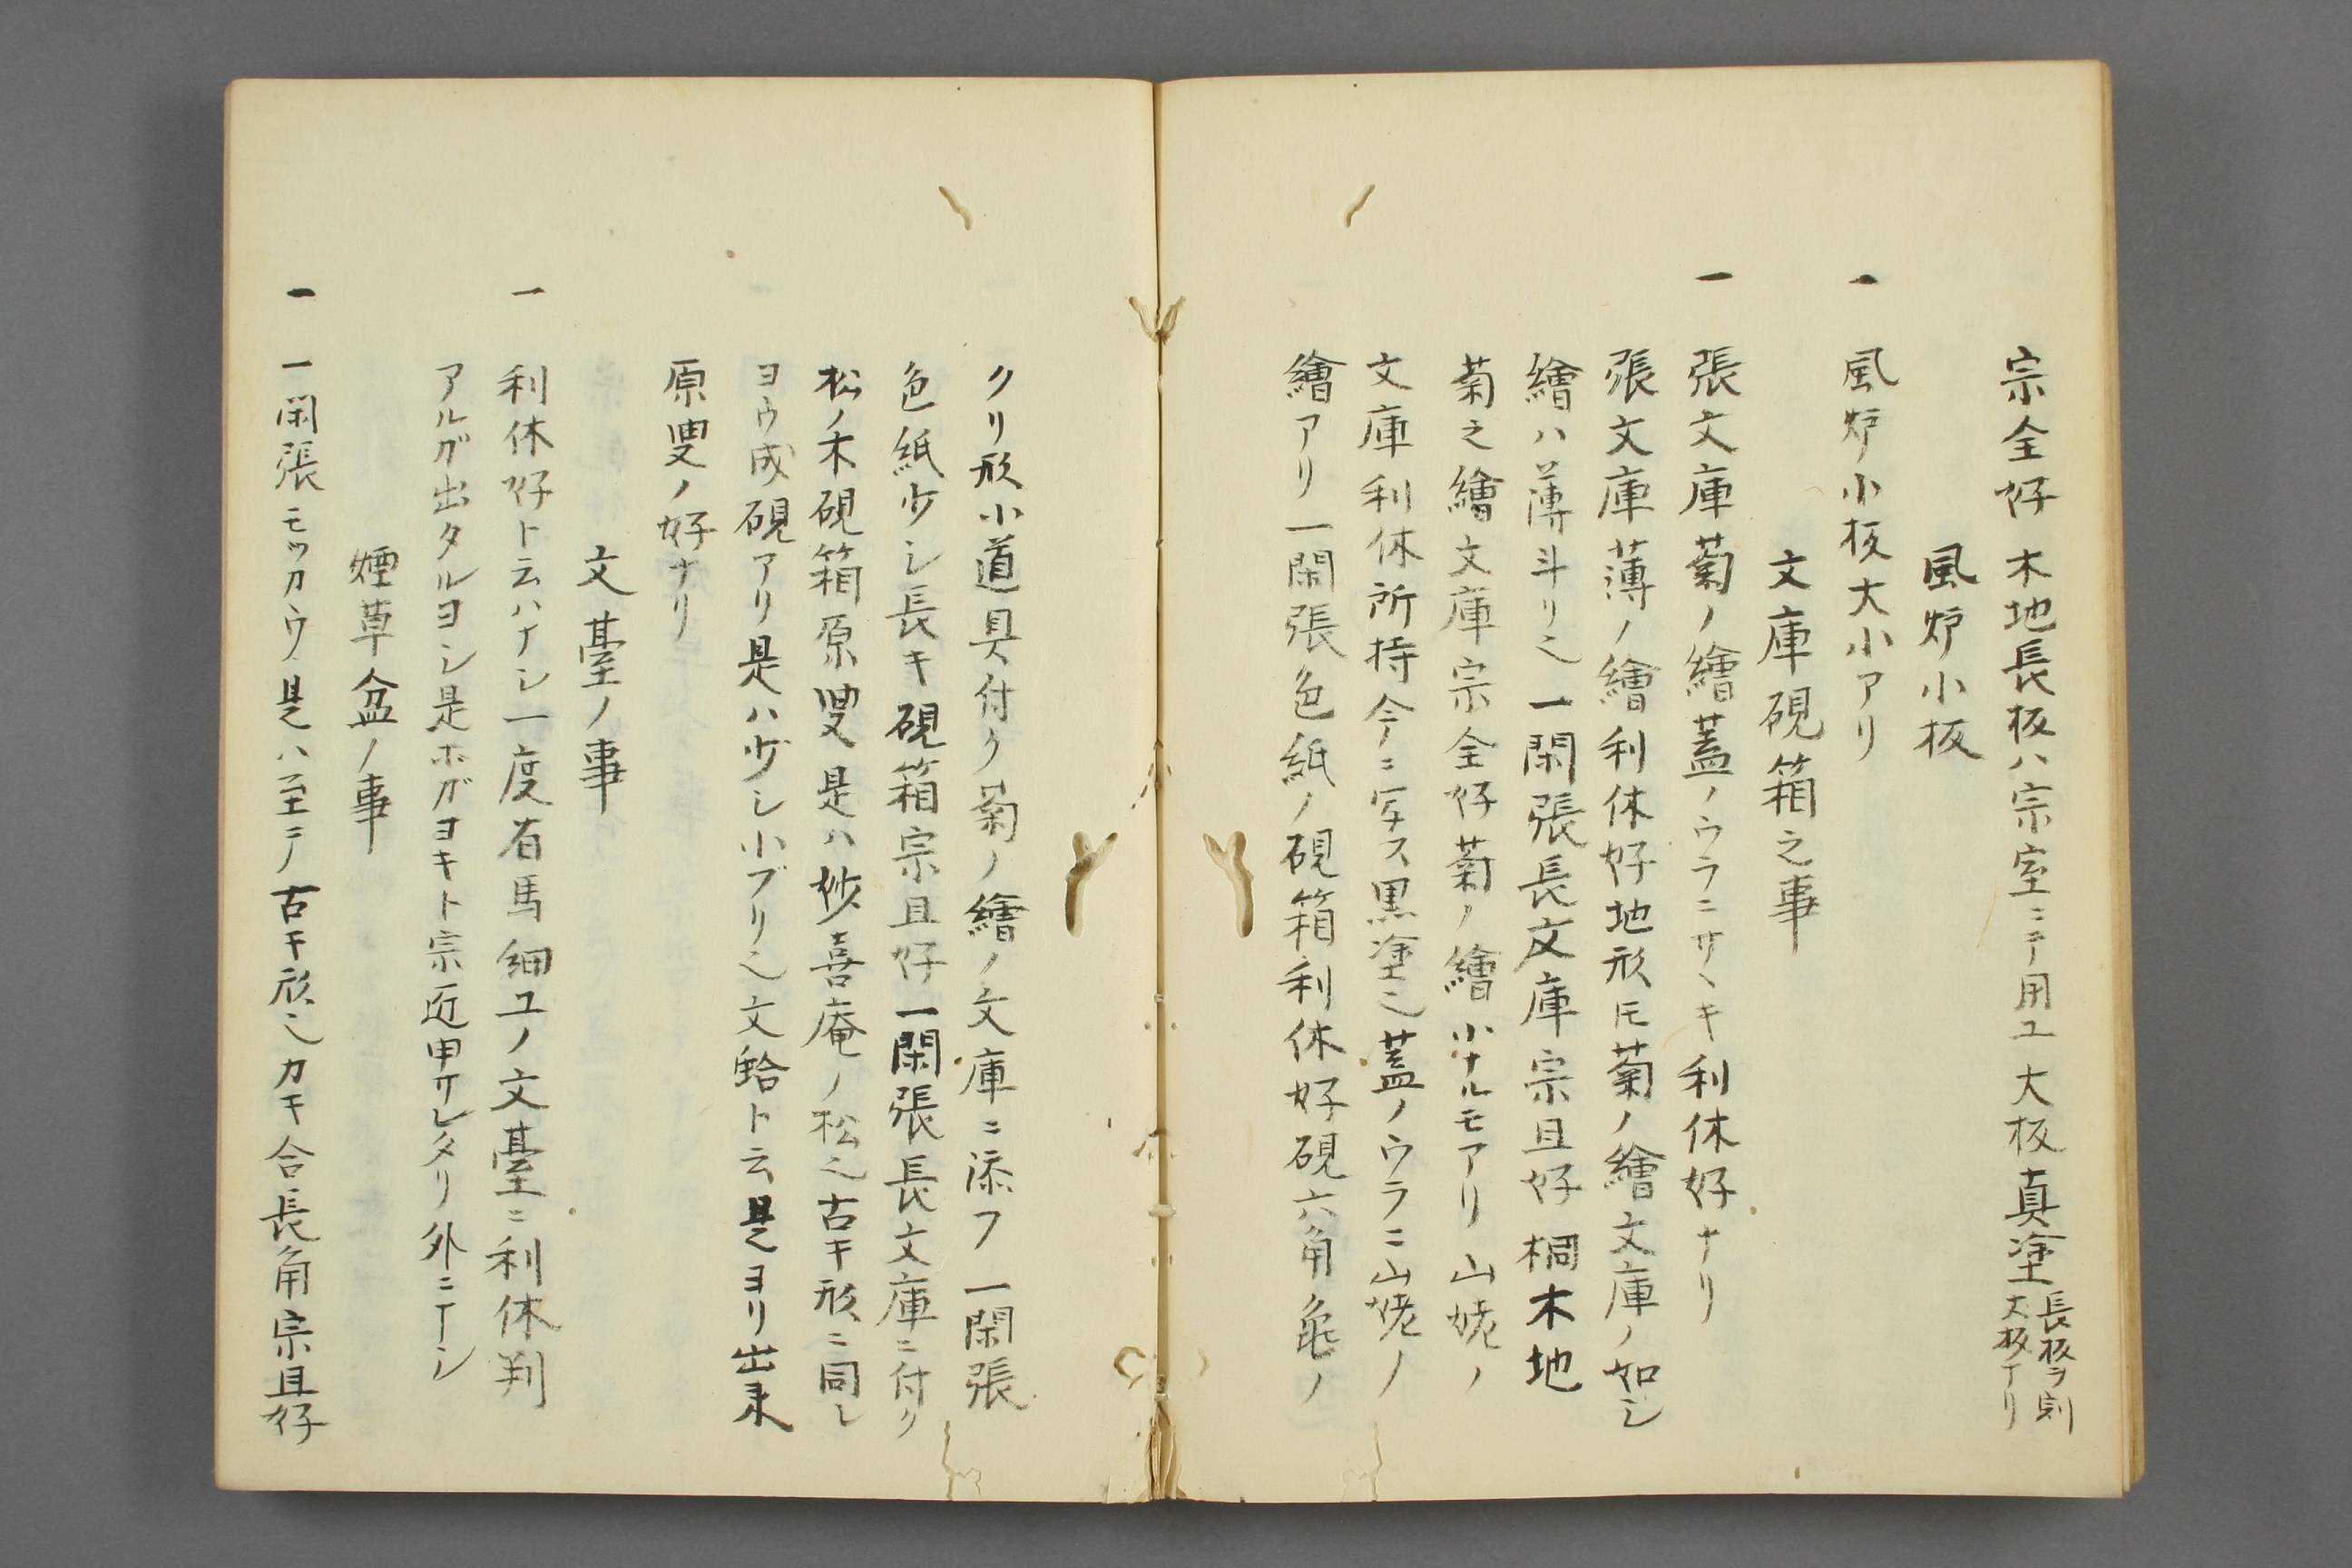 宗全好 木地長板ハ宗室ニテ用ユ 大板真塗 長板ヲ則
大板ナリ
風炉小板
一 風炉小板大小アリ
文庫硯箱之事
一 張文庫菊ノ繪蓋ノウラニサヽキ利休好ナリ
張文庫薄ノ繪利休好地形モ菊ノ繪文庫ノ如シ
繪ハ薄斗リ也 一閑張長文庫宗旦好 桐木地
菊之繪文庫宗全好菊ノ繪小ナルモアリ 山姥ノ
文庫利休所持今ニ写ス黒塗也蓋ノウラニ山姥ノ
繪アリ 一閑張色紙ノ硯箱利休好硯六角亀ノ
クリ形小道具付ク菊ノ繪ノ文庫ニ添フ 一閑張
色紙少シ長キ硯箱宗旦好一閑張長文庫ニ付ク
松ノ木硯箱原叟是ハ妙喜庵ノ松也古キ形ニ同シ
ヨウ成硯アリ是ハ少シ小ブリ也文蛤ト云是ヨリ出来
原叟ノ好ナリ
文臺ノ事
一 利休好ト云ハナシ一度有馬細工ノ文臺ニ利休判
アルガ出タルヨシ是ホガヨキト宗匠申サレタリ外ニナシ
煙草盆ノ事
一 一閑張モツカウ是ハ至テ古キ形也カキ合長角宗旦好